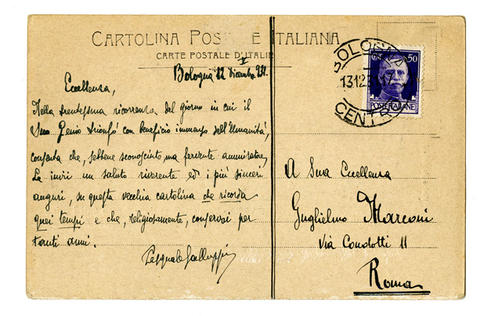 CARTOLINA POS E ITALIANA
CARTE POSTALE D'ITALIE
Bologna 12 Dicembre
Eccellenza,
Nella trentessima ricorrenza del giorno in cui il
Suo Genio trionfò con beneficio immenso dell'Umanità,
consenta che, sebbene sconosciuto ma fervente ammiratore,
Le invii un saluto riverente ed i più sinceri
auguri, su questa vecchia cartolina che ricorda
quei tempi e che, religiosamente, conservai per
tanti anni.
Pasquale Galluppi
BOLOGNA
13.12
CENTRO
CENT. 50
POSTE ITALIANE
A Sua Eccellenza
Guglielmo Marconi
Via Condotti 11
Roma